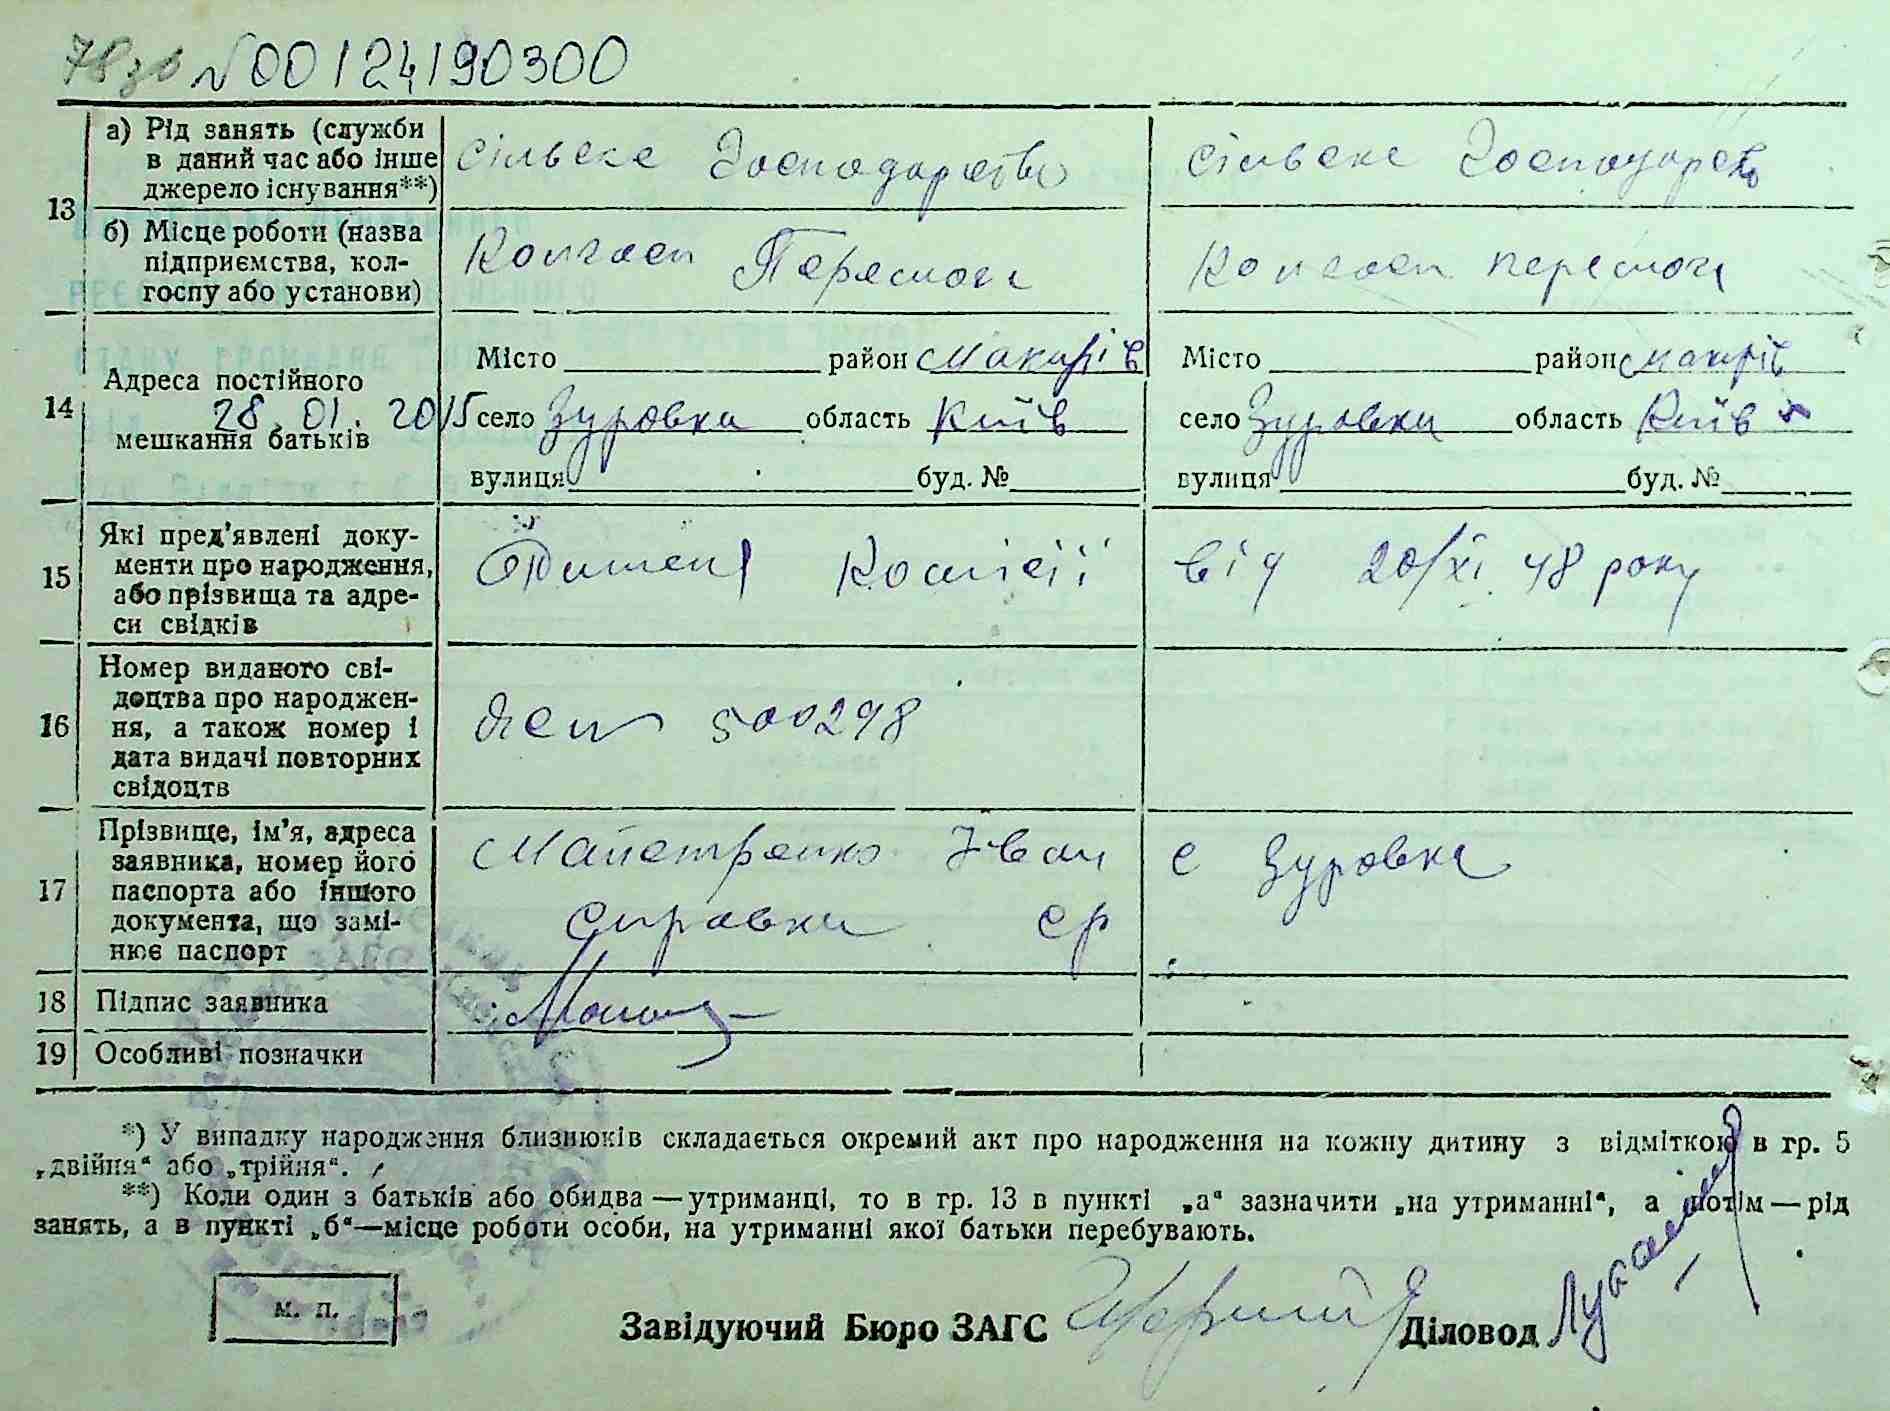 78зв №00124190300
13
а) Рід занять (служби в даний час або інше джерело існування**)
сільске господарство
сільске господарство
б) Місце роботи (назва підприємства, колгоспу або установи)
Колгосп Перемога
Колгосп перемога
14
Адреса постійного мешкання батьків
28.01.2015
Місто район Макарів
село Зуровка область Київ
вулиця буд. №
Місто район Макарів
село Зуровка область Київ
вулиця буд. №
15
Які пред'явлені документи про народження, або прізвища та адреси свідків
Комісії
від 20/XI 48 року
16
Номер виданого свідоцтва про народження, а також номер і дата видачі повторних свідоцтв
500298
17
Прізвище, ім'я, адреса заявника, номер його паспорта або іншого документа, що замінює паспорт
Майстренко Іван
с Зуровка
справка ср
18
Підпис заявника
19
Особливі позначки
*) У випадку народження близнюків складається окремий акт про народження на кожну дитину з відміткою в гр. 5
„двійня“ або „трійня“.
**) Коли один з батьків або обидва — утриманці, то в гр. 13 в пункті „а“ зазначити „на утриманні“, а потім — рід
занять, а в пункті „б“—місце роботи особи, на утриманні якої батьки перебувають.
м. п.
Завідуючий Бюро ЗАГС
Діловод